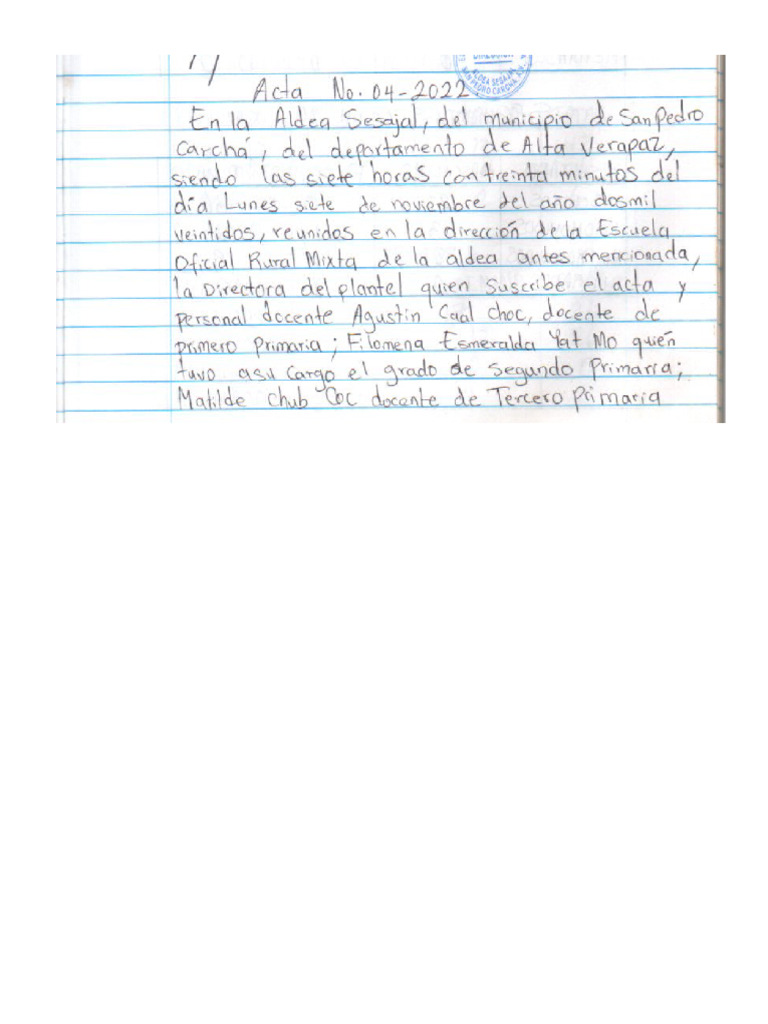 Acta No. 04-2022.
En la Aldea Sesajal, del municipio de San Pedro
Carchá, del departamento de Alta Verapaz,
siendo las siete horas con treinta minutos del
día Lunes siete de noviembre del año dosmil
veintidos, reunidos en la dirección de la Escuela
Oficial Rural Mixta de la aldea antes mencionada,
la Directora del plantel quien suscribe el acta y
personal docente Agustin Caal Choc, docente de
primero primaria; Filomena Esmeralda Yat Mo quién
tuvo asu cargo el grado de segundo Primaria;
Matilde chub Coc docente de Tercero primaria